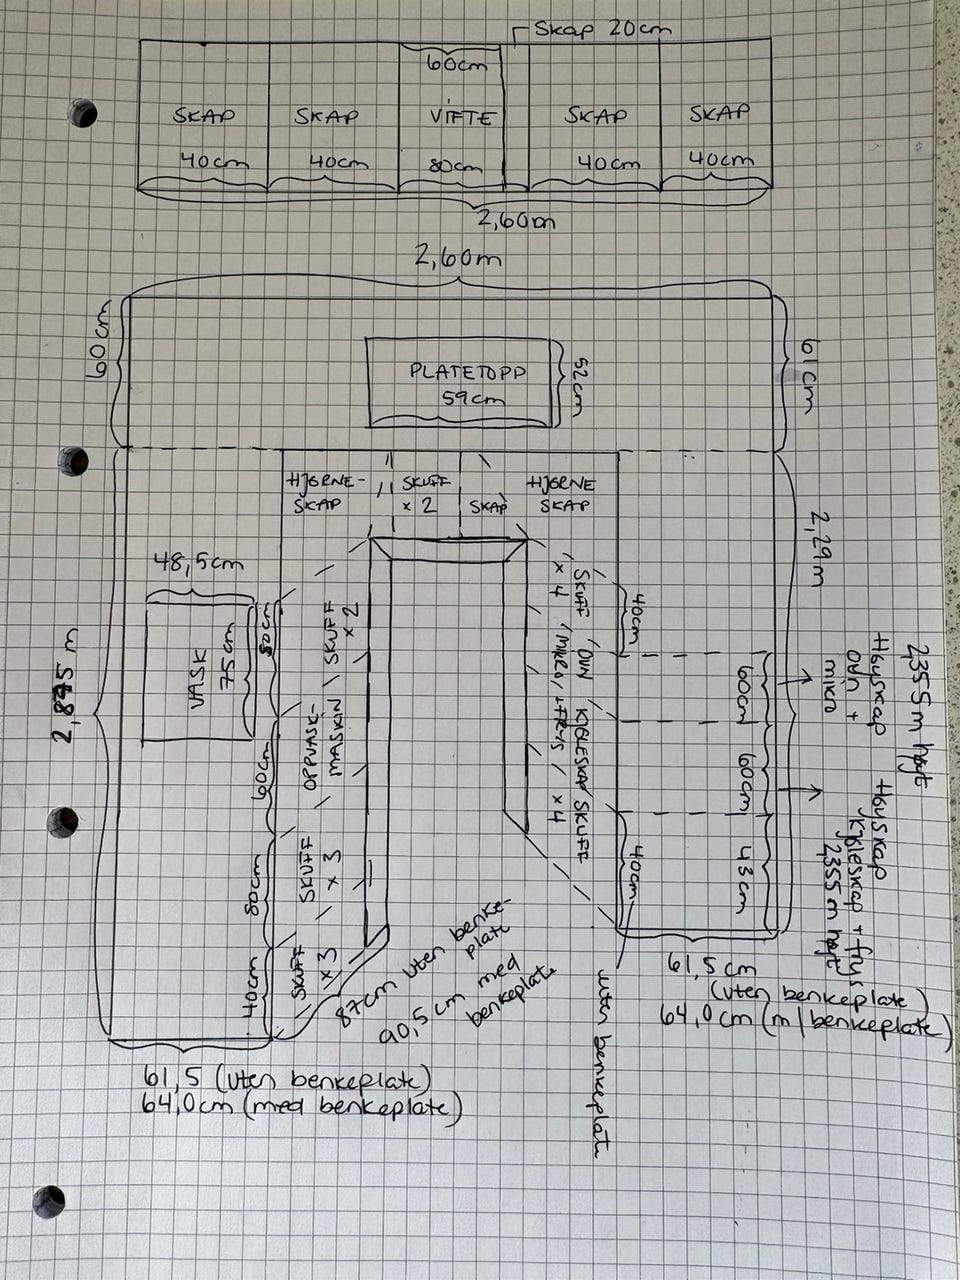 Skap 20cm
60cm
SKAP
SKAP
VIFTE
SKAP
SKAP
40cm
40cm
80cm
40cm
40cm
2,60m
2,60m
60cm
61cm
PLATETOPP
59cm
52cm
HJØRNE-
SKAP
SKUFF
x 2
SKAP
HJØRNE
SKAP
48,5cm
VASK
75cm
2,895 m
80cm
60cm
80cm
40cm
SKUFF
x 2
OPPVASK-
MASKIN
SKUFF
x 3
SKUFF
x 3
SKUFF
x 4
OVN
/MIKRO
KJØLESKAP
/FRYS
SKUFF
x 4
40cm
60cm
60cm
43cm
40cm
uten benkeplate
2,29m
Høyskap
ovn +
mikro
2,355 m høyt
Høyskap
Kjøleskap + frys
2,355 m høyt
87cm uten benke-
plate
90,5 cm med
benkeplate
61,5 cm
(uten benkeplate)
64,0cm (m/benkeplate)
61,5 (uten benkeplate)
64,0cm (med benkeplate)